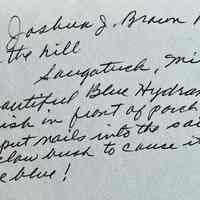 Joshua J. Brown
the hill
Saugatuck, Mi
autiful Blue Hydran
ish in front of porch
put nails into the soi
claw bush to cause it
e blue!